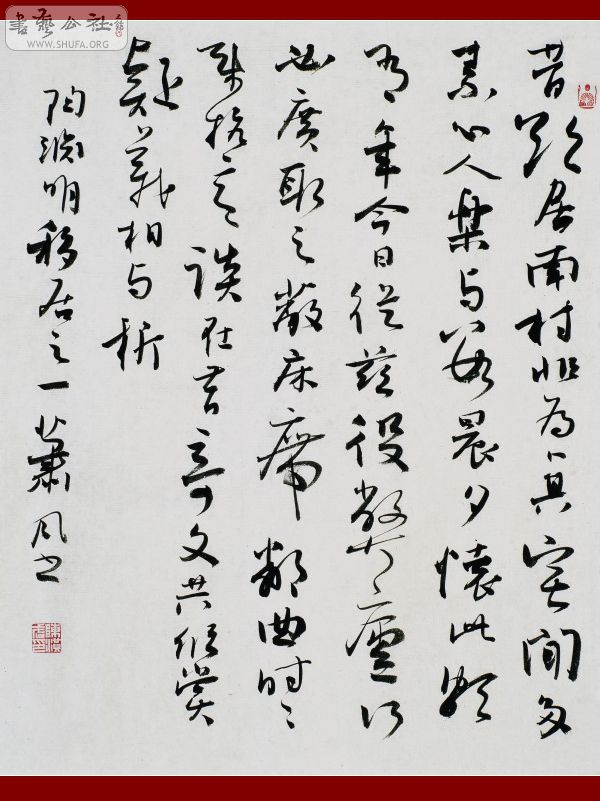 書藝公社
WWW.SHUFA.ORG
昔欲居南村非為卜其宅聞多
素心人樂与數晨夕懷此頗
有年今日從茲役敝廬何
必廣取足蔽床席鄰曲時〻
来抗言談在昔奇文共欣賞
疑義相与析
陶淵明移居之一 蕭風書